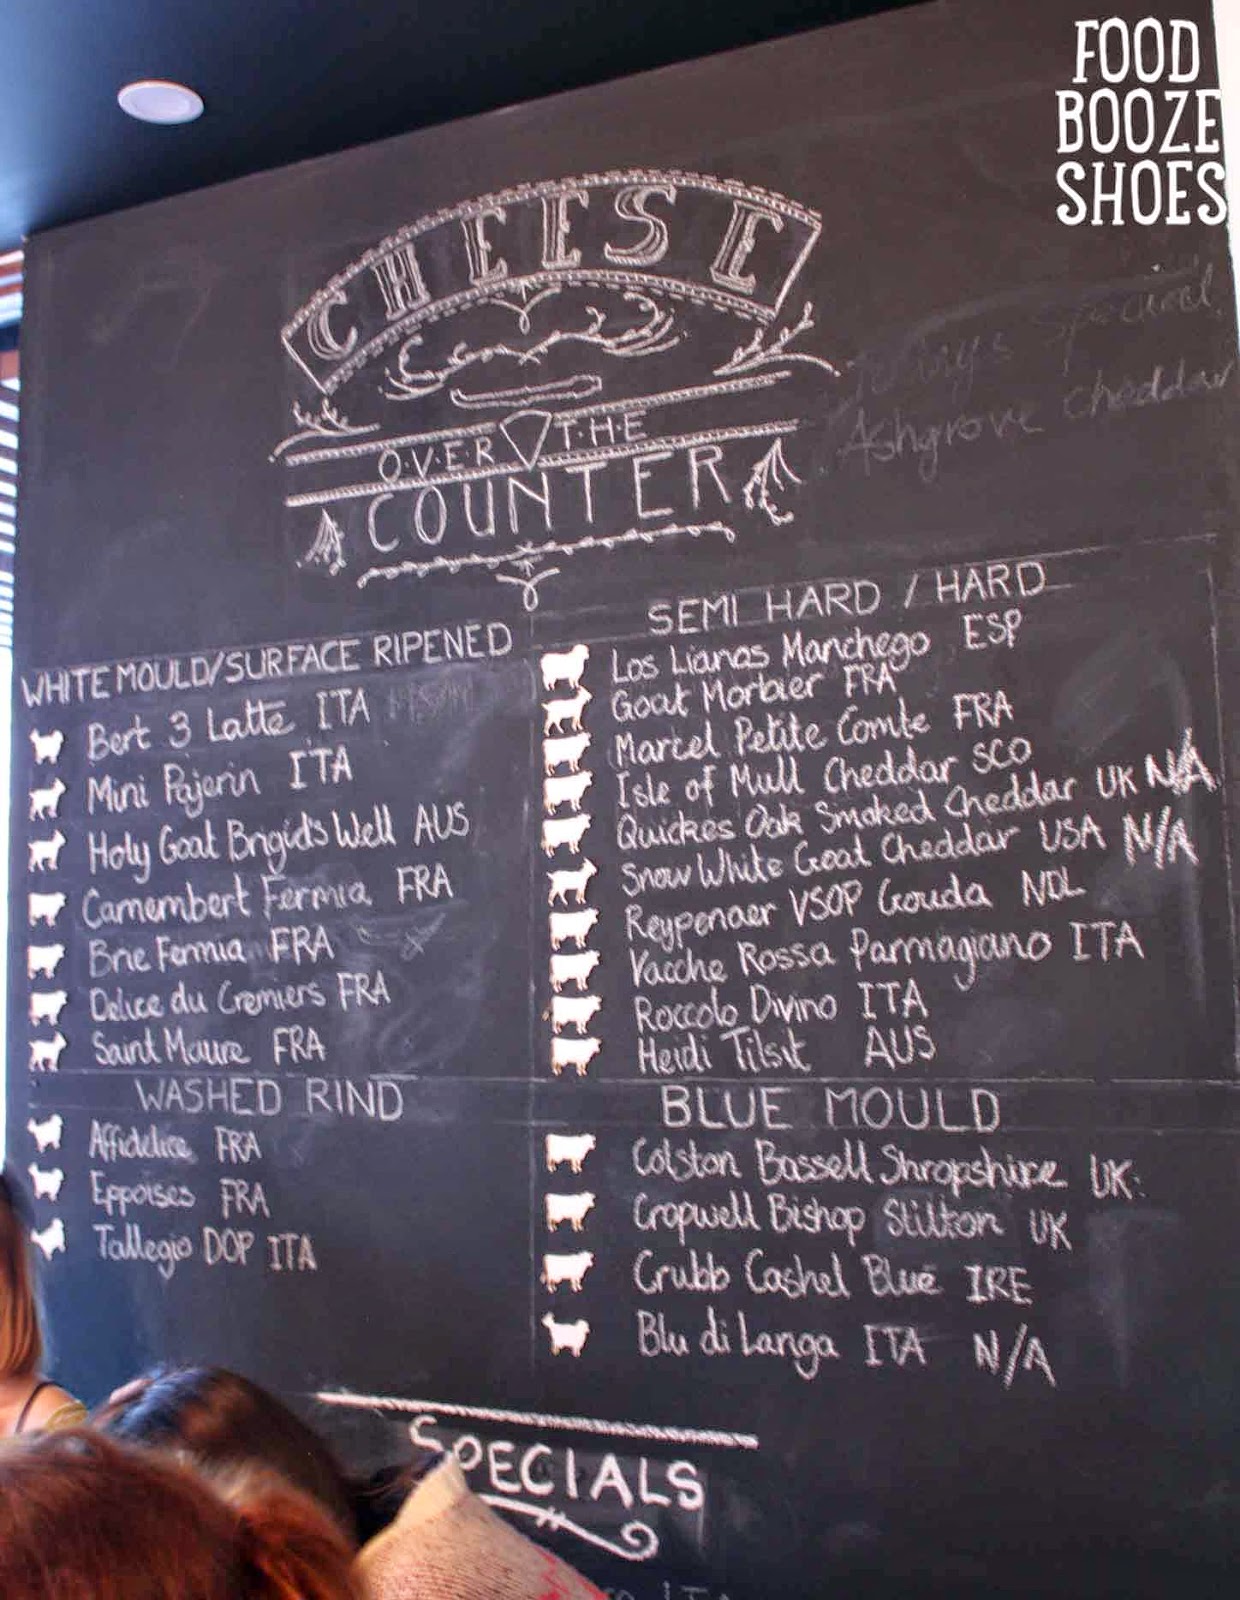 FOOD
BOOZE
SHOES
CHEESE
OVER THE
COUNTER
Special
Ashgrove Cheddar
WHITE MOULD/SURFACE RIPENED
Bert 3 Latte ITA
Mini Pajerin ITA
Holy Goat Brigid's Well AUS
Camembert Fermia FRA
Brie Fermia FRA
Delice du Cremiers FRA
Saint Maure FRA
WASHED RIND
Affidelice FRA
Eppoises FRA
Tallegio DOP ITA
SEMI HARD / HARD
Los Lianas Manchego ESP
Goat Morbier FRA
Marcel Petite Comte FRA
Isle of Mull Cheddar SCO
Quickes Oak Smoked Cheddar UK N/A
Snow White Goat Cheddar USA N/A
Reypenaer VSOP Gouda NDL
Vacche Rossa Parmagiano ITA
Roccolo Divino ITA
Heidi Tilsit AUS
BLUE MOULD
Colston Bassell Shropshire UK
Cropwell Bishop Stilton UK
Crubb Cashel Blue IRE
Blu di Langa ITA N/A
SPECIALS